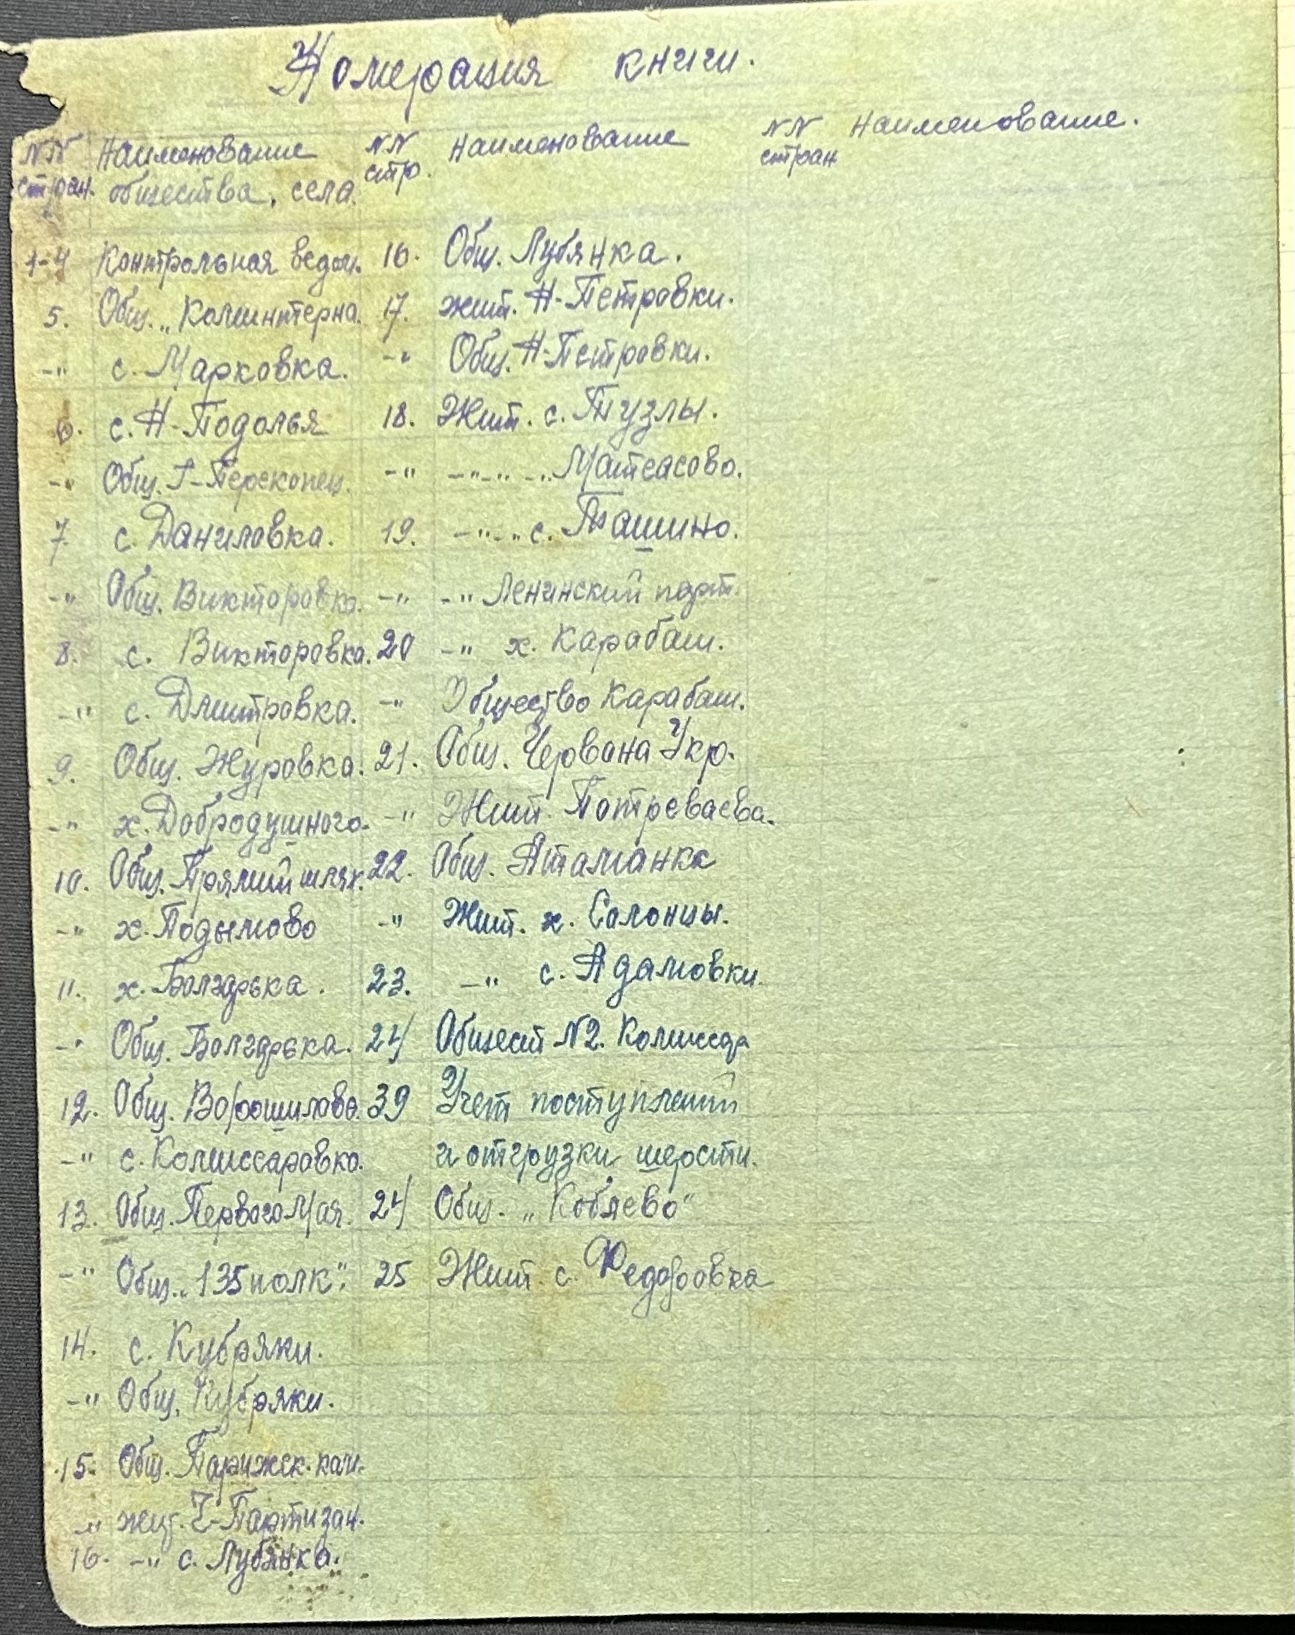 Номерация книги.
NN стран. Наименование общества, села.
1-4 Контрольная ведом.
5. Общ. „Коминтерна.
-" с. Марковка.
6. с. Н-Подолья
-" Общ. Г-Перекопец.
7 с. Даниловка.
-" Общ. Викторовка.
8. с. Викторовка.
-" с. Дмитровка.
9. Общ. Журовка.
-" х. Добродушного.
10. Общ. Прямий шлях.
-" х. Подымово
11. х. Болгарка.
-" Общ. Болгарка.
12. Общ. Ворошилова.
-" с. Комиссаровка.
13. Общ. Первого Мая.
-" Общ. „135 полк".
14. с. Кубряки.
-" Общ. Кубряки.
15. Общ. Парижск. ком.
-" жит. Ч-Партизан.
16. -" с. Лубянка.
NN стр. Наименование
16. Общ. Лубянка.
17. жит. Н-Петровки.
-" Общ. Н-Петровки.
18. Жит. с. Тузлы.
-" -"-"-" Матеасово.
19. -"-" с. Ташино.
-" -" Ленинский парт.
20 -" х. Карабаш.
-" Общество Карабаш.
21. Общ. Червона Укр.
-" Жит. Потреваева.
22. Общ. Атаманка
-" Жит. х. Солонцы.
23. -" с. Адамовки.
24 Общест N2. Комиссар
39 Учет поступлений
и отгрузки шерсти.
24 Общ. „Кобяево"
25 Жит. с. Федоровка
NN стран Наименование.